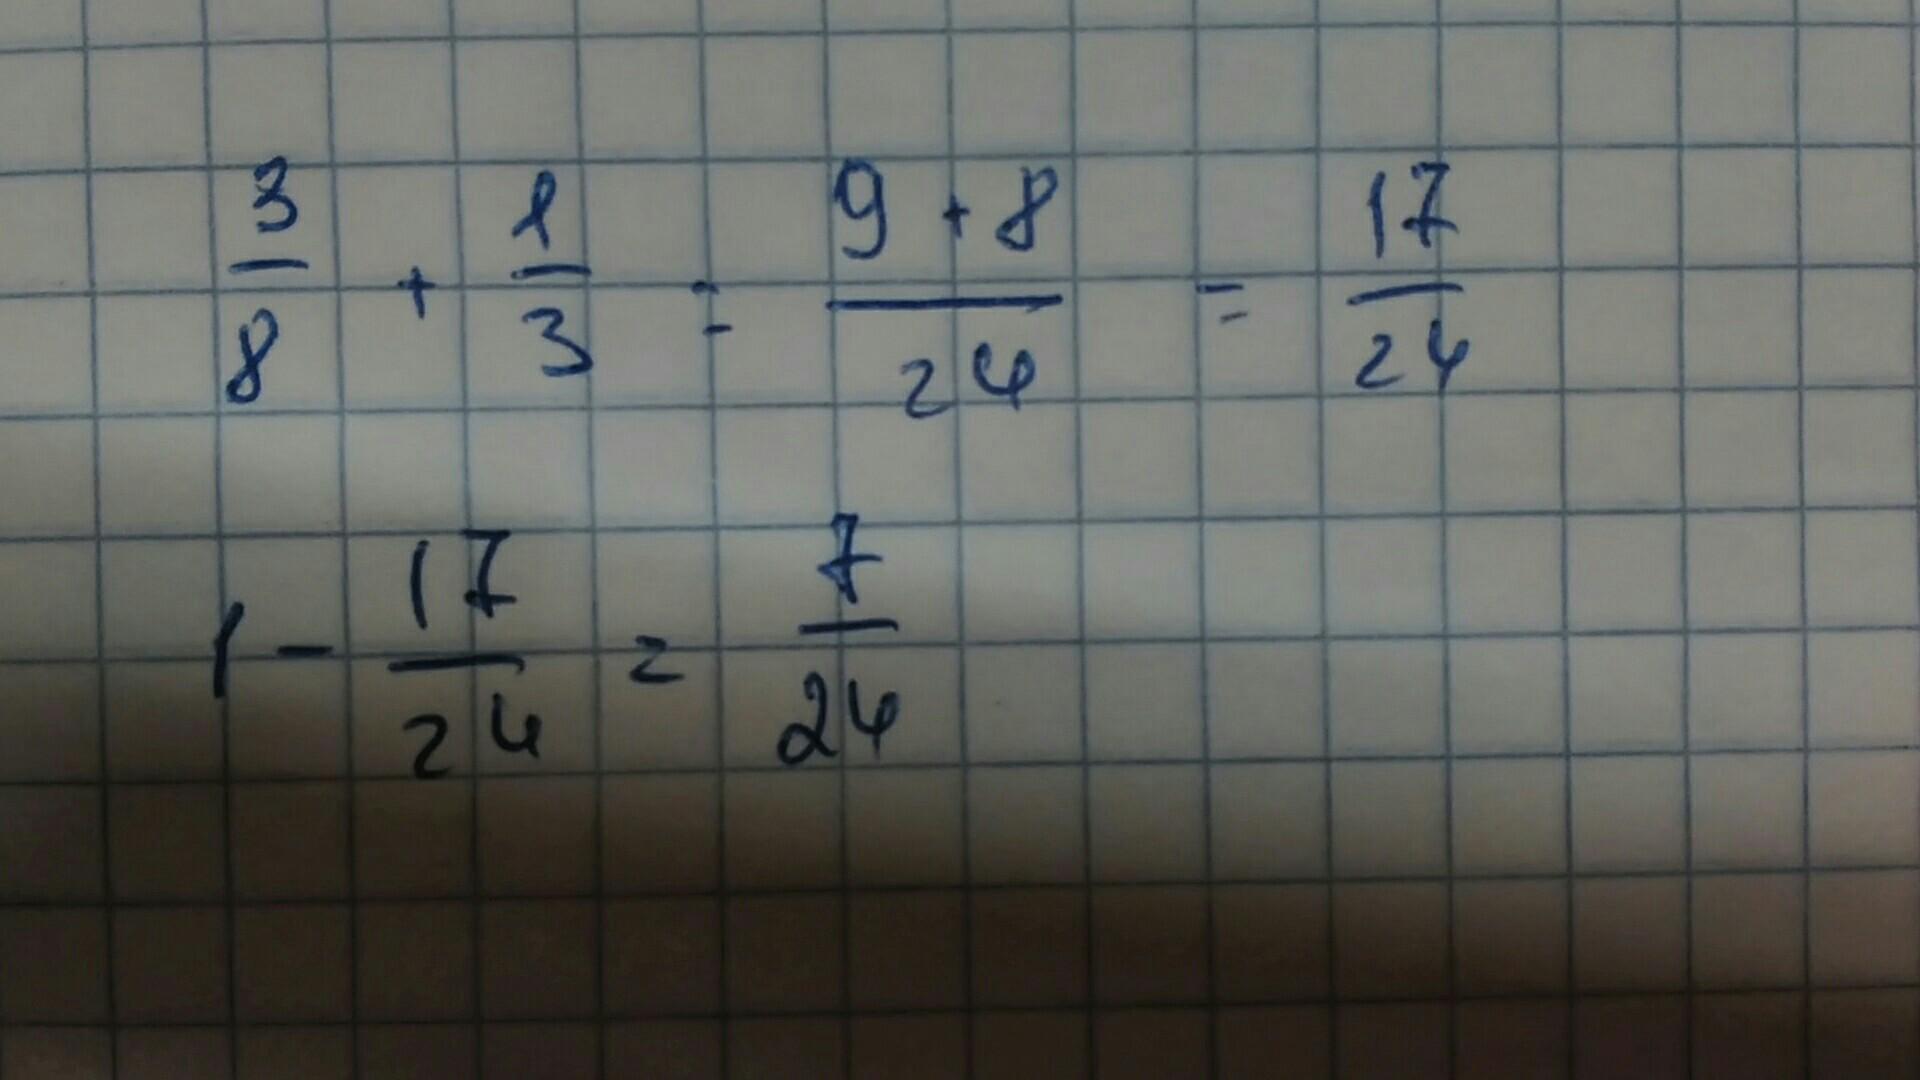 3/8 + 1/3 = (9 + 8)/24 = 17/24
1 - 17/24 = 7/24